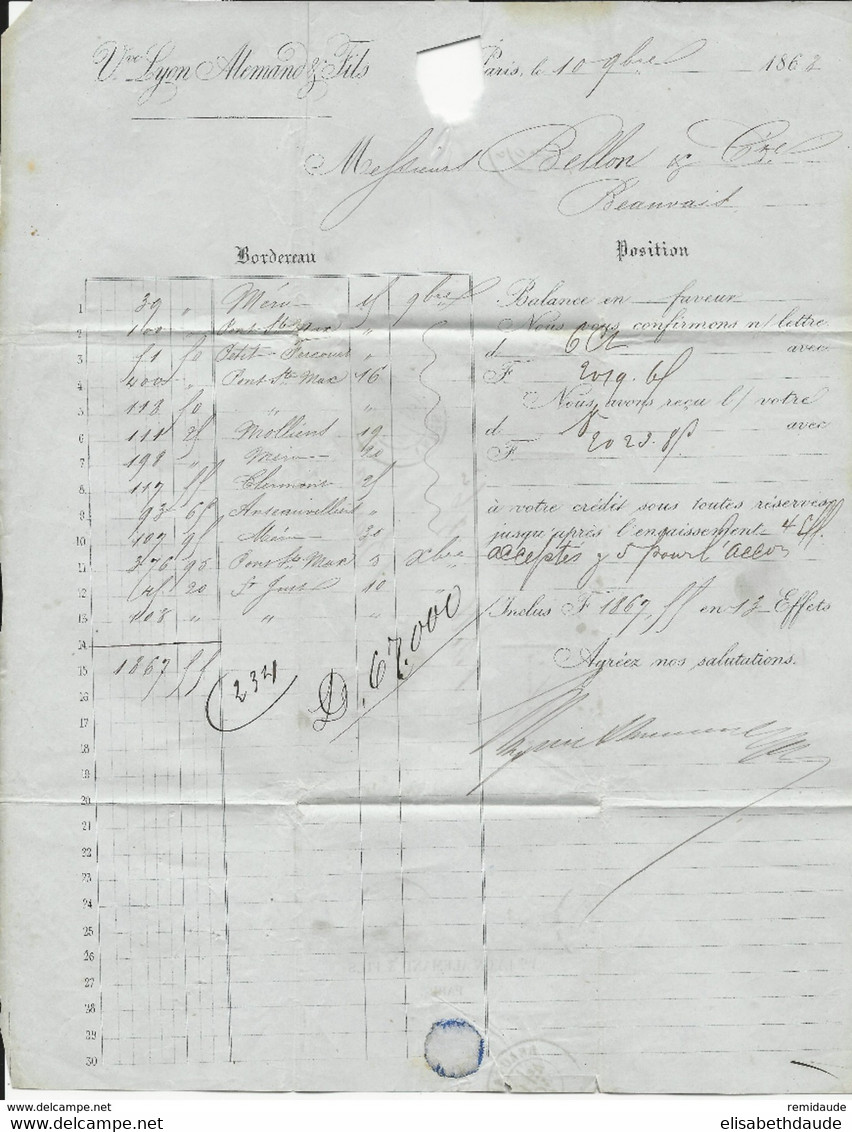 Vve Lyon Alemand & Fils
Paris, le 10 9bre 1862
Messieurs Bellon & Cie
Beauvais
Bordereau
Position
1 39 " Méru 15 9bre
2 100 " Pont Ste Max "
3 51 50 Petit "
4 400 " Pont Ste Max 16
5 118 50 " "
6 111 25 Molliens 19
7 198 " Méru 20
8 117 55 Clermont 25
9 93 65 Ansauvillers "
10 107 95 Méru 30
11 276 95 Pont Ste Max 5 Xbre
12 20 St Just 10 "
13 108 " " "
14
15 1867 55
16
17
18
19
20
21
22
23
24
25
26
27
28
29
30
234
D. 67.000
Balance en faveur
Nous vous confirmons n/ lettre
d 6 Ct avec
F 2019. 65
Nous avons reçu l/ votre
d 8 avec
F 2023. 85
à votre crédit sous toutes réserves
jusqu'après l'encaissement 4 Eff.
acceptés & 5 pour l'accon
Inclus F 1867, 55 en 13 Effets
Agréez nos salutations.
remidaude
www.delcampe.net
elisabethdaude